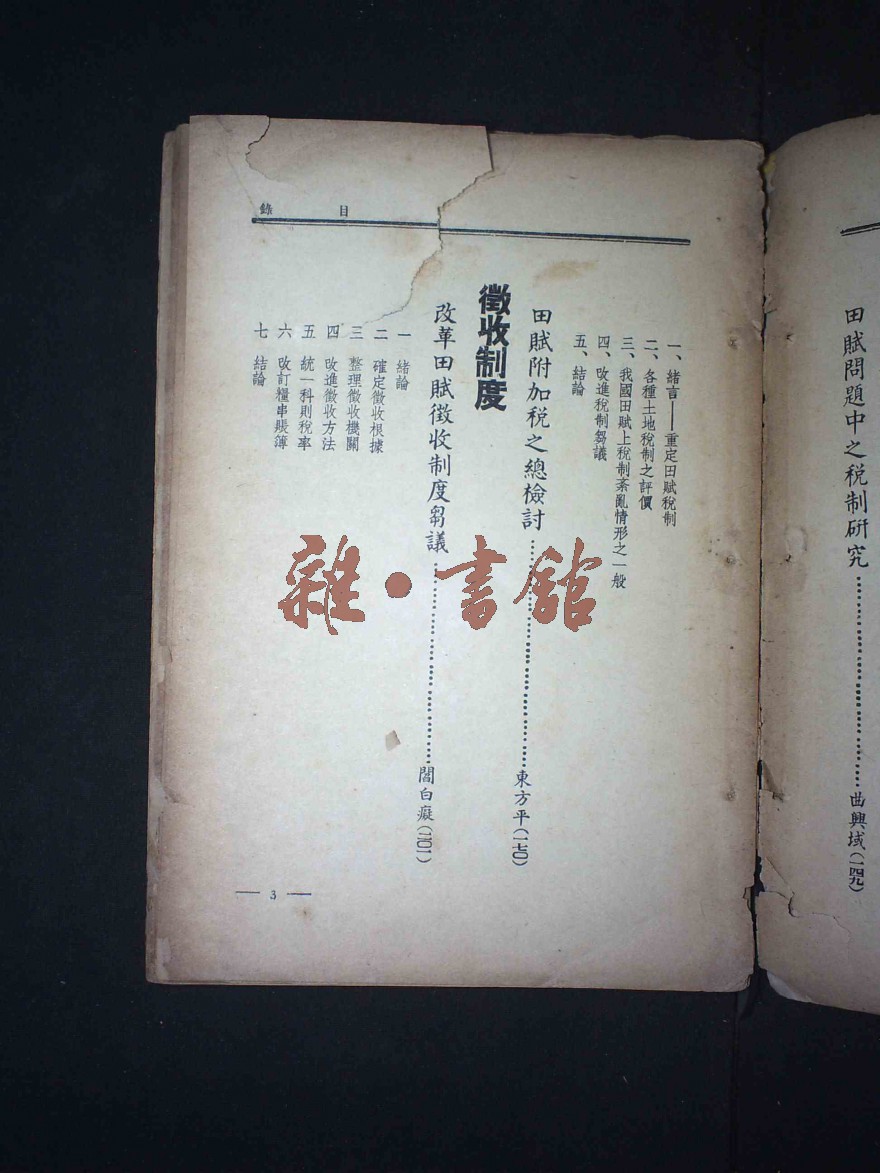 田賦問題中之稅制研究……曲興域(一四九)
目錄
一、緒言——重定田賦稅制
二、各種土地稅制之評價
三、我國田賦上稅制紊亂情形之一般
四、改進稅制芻議
五、結論
田賦附加稅之總檢討……東方平(一七〇)
徵收制度
改革田賦徵收制度芻議……閻白癡(二〇一)
一 緒論
二 確定徵收根據
三 整理徵收機關
四 改進徵收方法
五 統一科則稅率
六 改訂糧串賬簿
七 結論
— 3 —
雜·書館